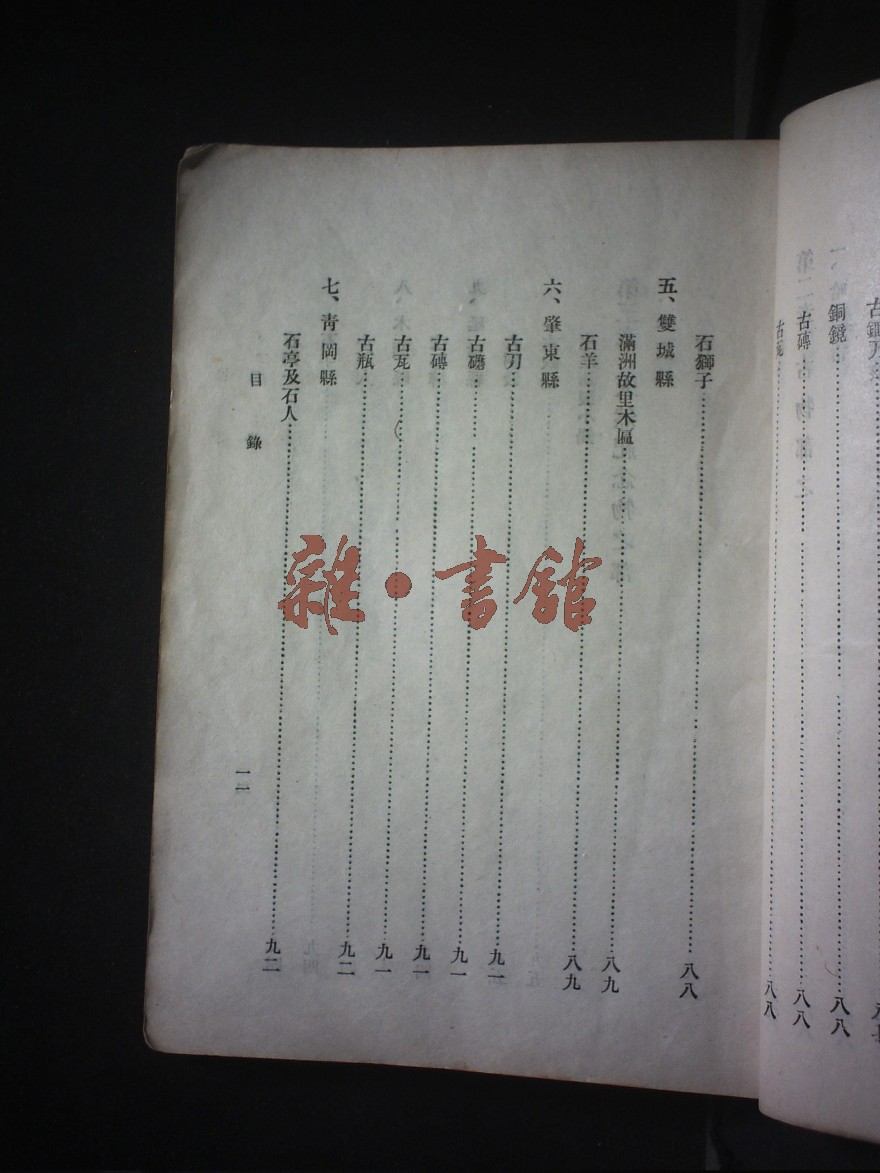 銅鏡……八八
古磚……八八
古瓦……八八
石獅子……八八
五、雙城縣
滿洲故里木區……八九
石羊……八九
六、肇東縣
古刀……九一
古礟……九一
古磚……九一
古瓦……九一
古瓶……九二
七、青岡縣
石亭及石人……九二
目錄
一一
雜·書館